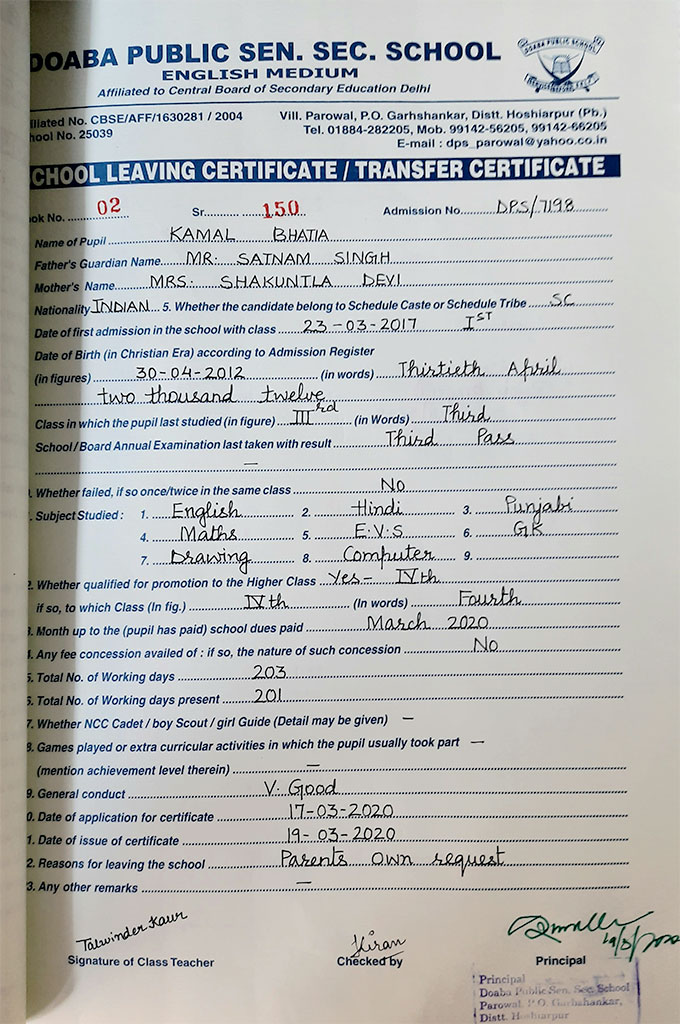 DOABA PUBLIC SEN. SEC. SCHOOL
DOABA PUBLIC SCHOOL
ENGLISH MEDIUM
Affiliated to Central Board of Secondary Education Delhi
iliated No. CBSE/AFF/1630281 / 2004 Vill. Parowal, P.O. Garhshankar, Distt. Hoshiarpur (Pb.)
hool No. 25039 Tel. 01884-282205, Mob. 99142-56205, 99142-66205
E-mail : dps_parowal@yahoo.co.in
CHOOL LEAVING CERTIFICATE / TRANSFER CERTIFICATE
ok No. 02 Sr. 150 Admission No. DPS/7198
Name of Pupil KAMAL BHATIA
Father's Guardian Name MR. SATNAM SINGH
Mother's Name MRS. SHAKUNTLA DEVI
Nationality INDIAN 5. Whether the candidate belong to Schedule Caste or Schedule Tribe SC
Date of first admission in the school with class 23-03-2017 Ist
Date of Birth (in Christian Era) according to Admission Register
(in figures) 30-04-2012 (in words) Thirtieth April
two thousand twelve
Class in which the pupil last studied (in figure) IIIrd (in Words) Third
School / Board Annual Examination last taken with result Third Pass
—
. Whether failed, if so once/twice in the same class No
. Subject Studied : 1. English 2. Hindi 3. Punjabi
4. Maths 5. E.V.S 6. GK
7. Drawing 8. Computer 9.
2. Whether qualified for promotion to the Higher Class Yes- IVth
if so, to which Class (In fig.) IVth (In words) Fourth
3. Month up to the (pupil has paid) school dues paid March 2020
4. Any fee concession availed of : if so, the nature of such concession No
5. Total No. of Working days 203
6. Total No. of Working days present 201
7. Whether NCC Cadet / boy Scout / girl Guide (Detail may be given) —
8. Games played or extra curricular activities in which the pupil usually took part —
(mention achievement level therein) —
9. General conduct V. Good
0. Date of application for certificate 17-03-2020
1. Date of issue of certificate 19-03-2020
2. Reasons for leaving the school Parents own request
3. Any other remarks —
Talwinder Kaur Kiran 19/3/2020
Signature of Class Teacher Checked by Principal
Principal
Doaba Public Sen. Sec. School
Parowal, P.O. Garhshankar,
Distt. Hoshiarpur